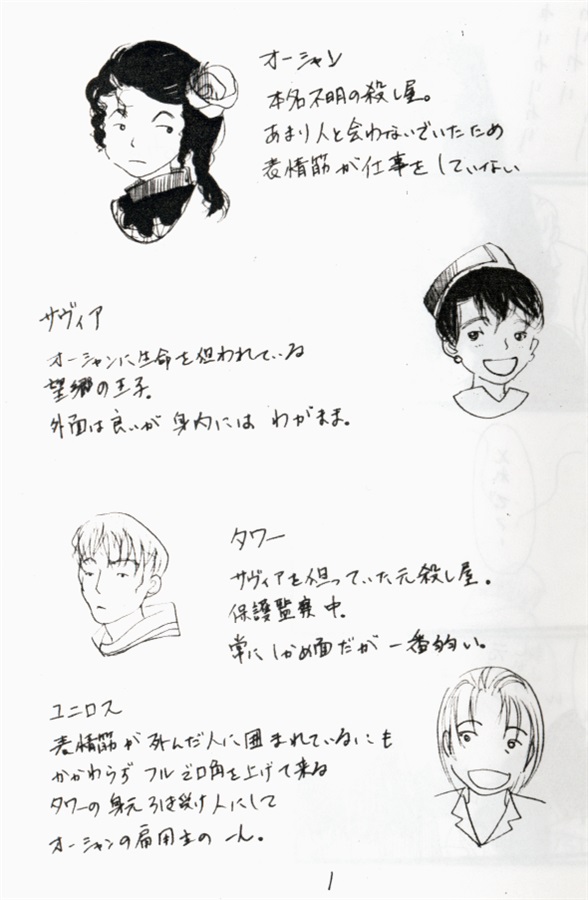 オーシャン
本名不明の殺し屋。
あまり人と会わないでいたため
表情筋が仕事をしていない
サヴィア
オーシャンに生命を狙われている
望郷の王子。
外面は良いが身内にはわがまま。
タワー
サヴィアを狙っていた元殺し屋。
保護監察中。
常にしかめ面だが一番幼い。
ユニロス
表情筋が死んだ人に囲まれているにも
かかわらずフルで口角を上げて来る
タワーの身元引き受け人にして
オーシャンの雇用主の一人。
1